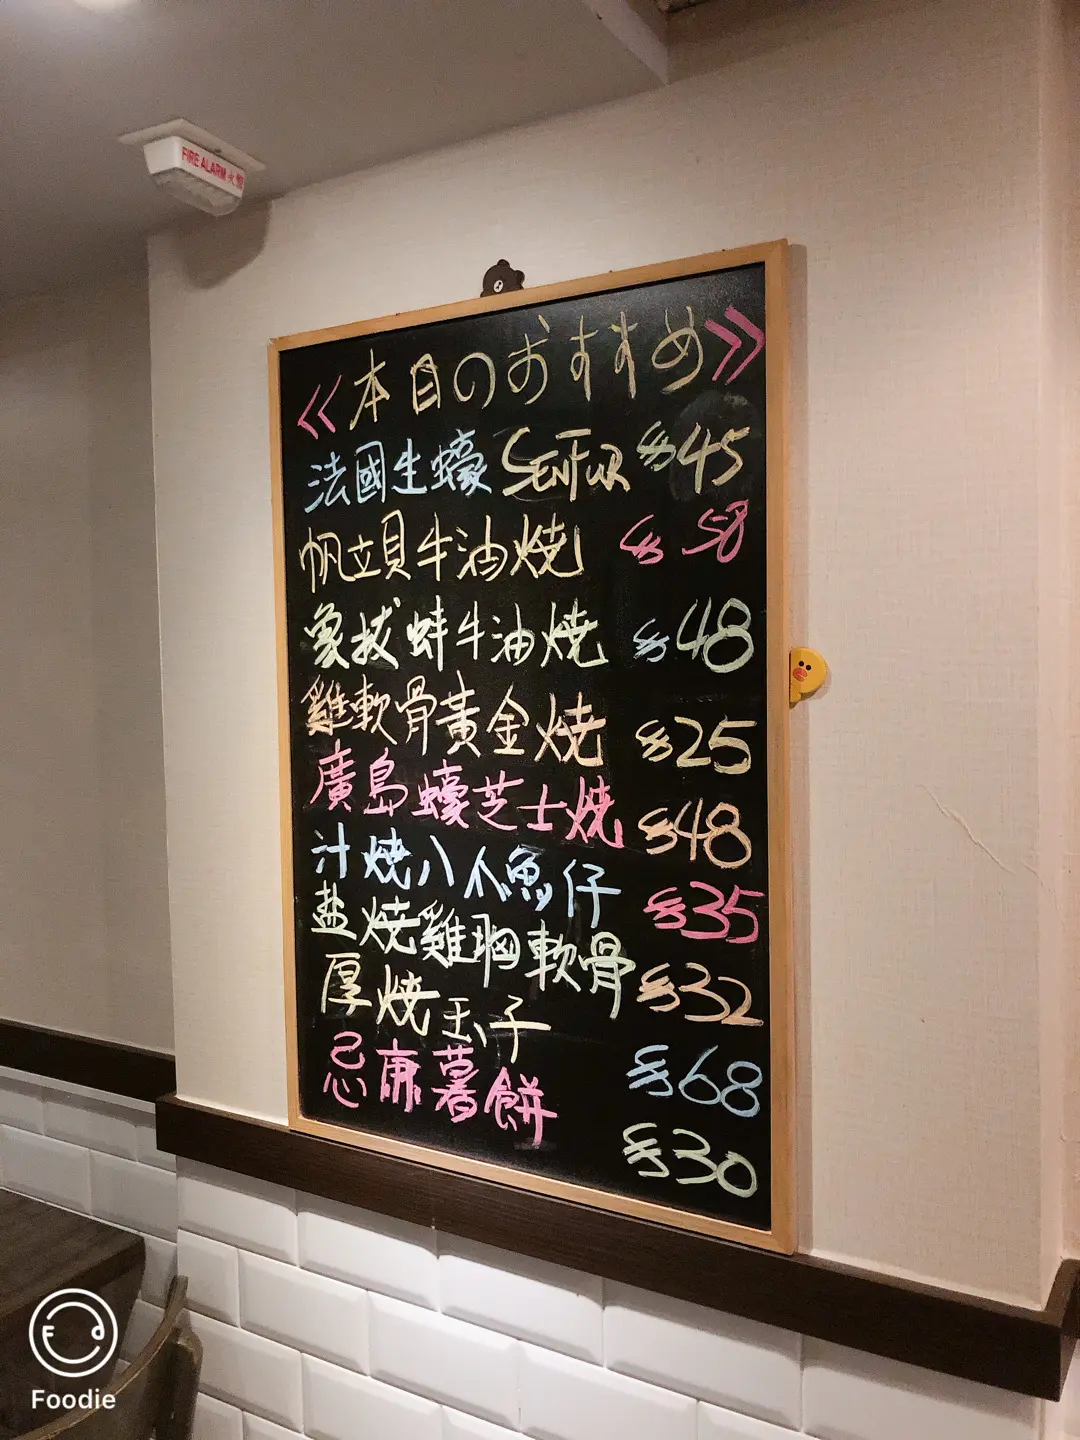 FIRE ALARM 火警
《本日のおすすめ》
法國生蠔 SENFUR $45
帆立貝牛油燒 $58
象拔蚌牛油燒 $48
雞軟骨黃金燒 $25
廣島蠔芝士燒 $48
汁燒八爪魚仔 $35
盐燒雞胸軟骨 $32
厚燒玉子 $68
忌廉薯餅 $30
Foodie